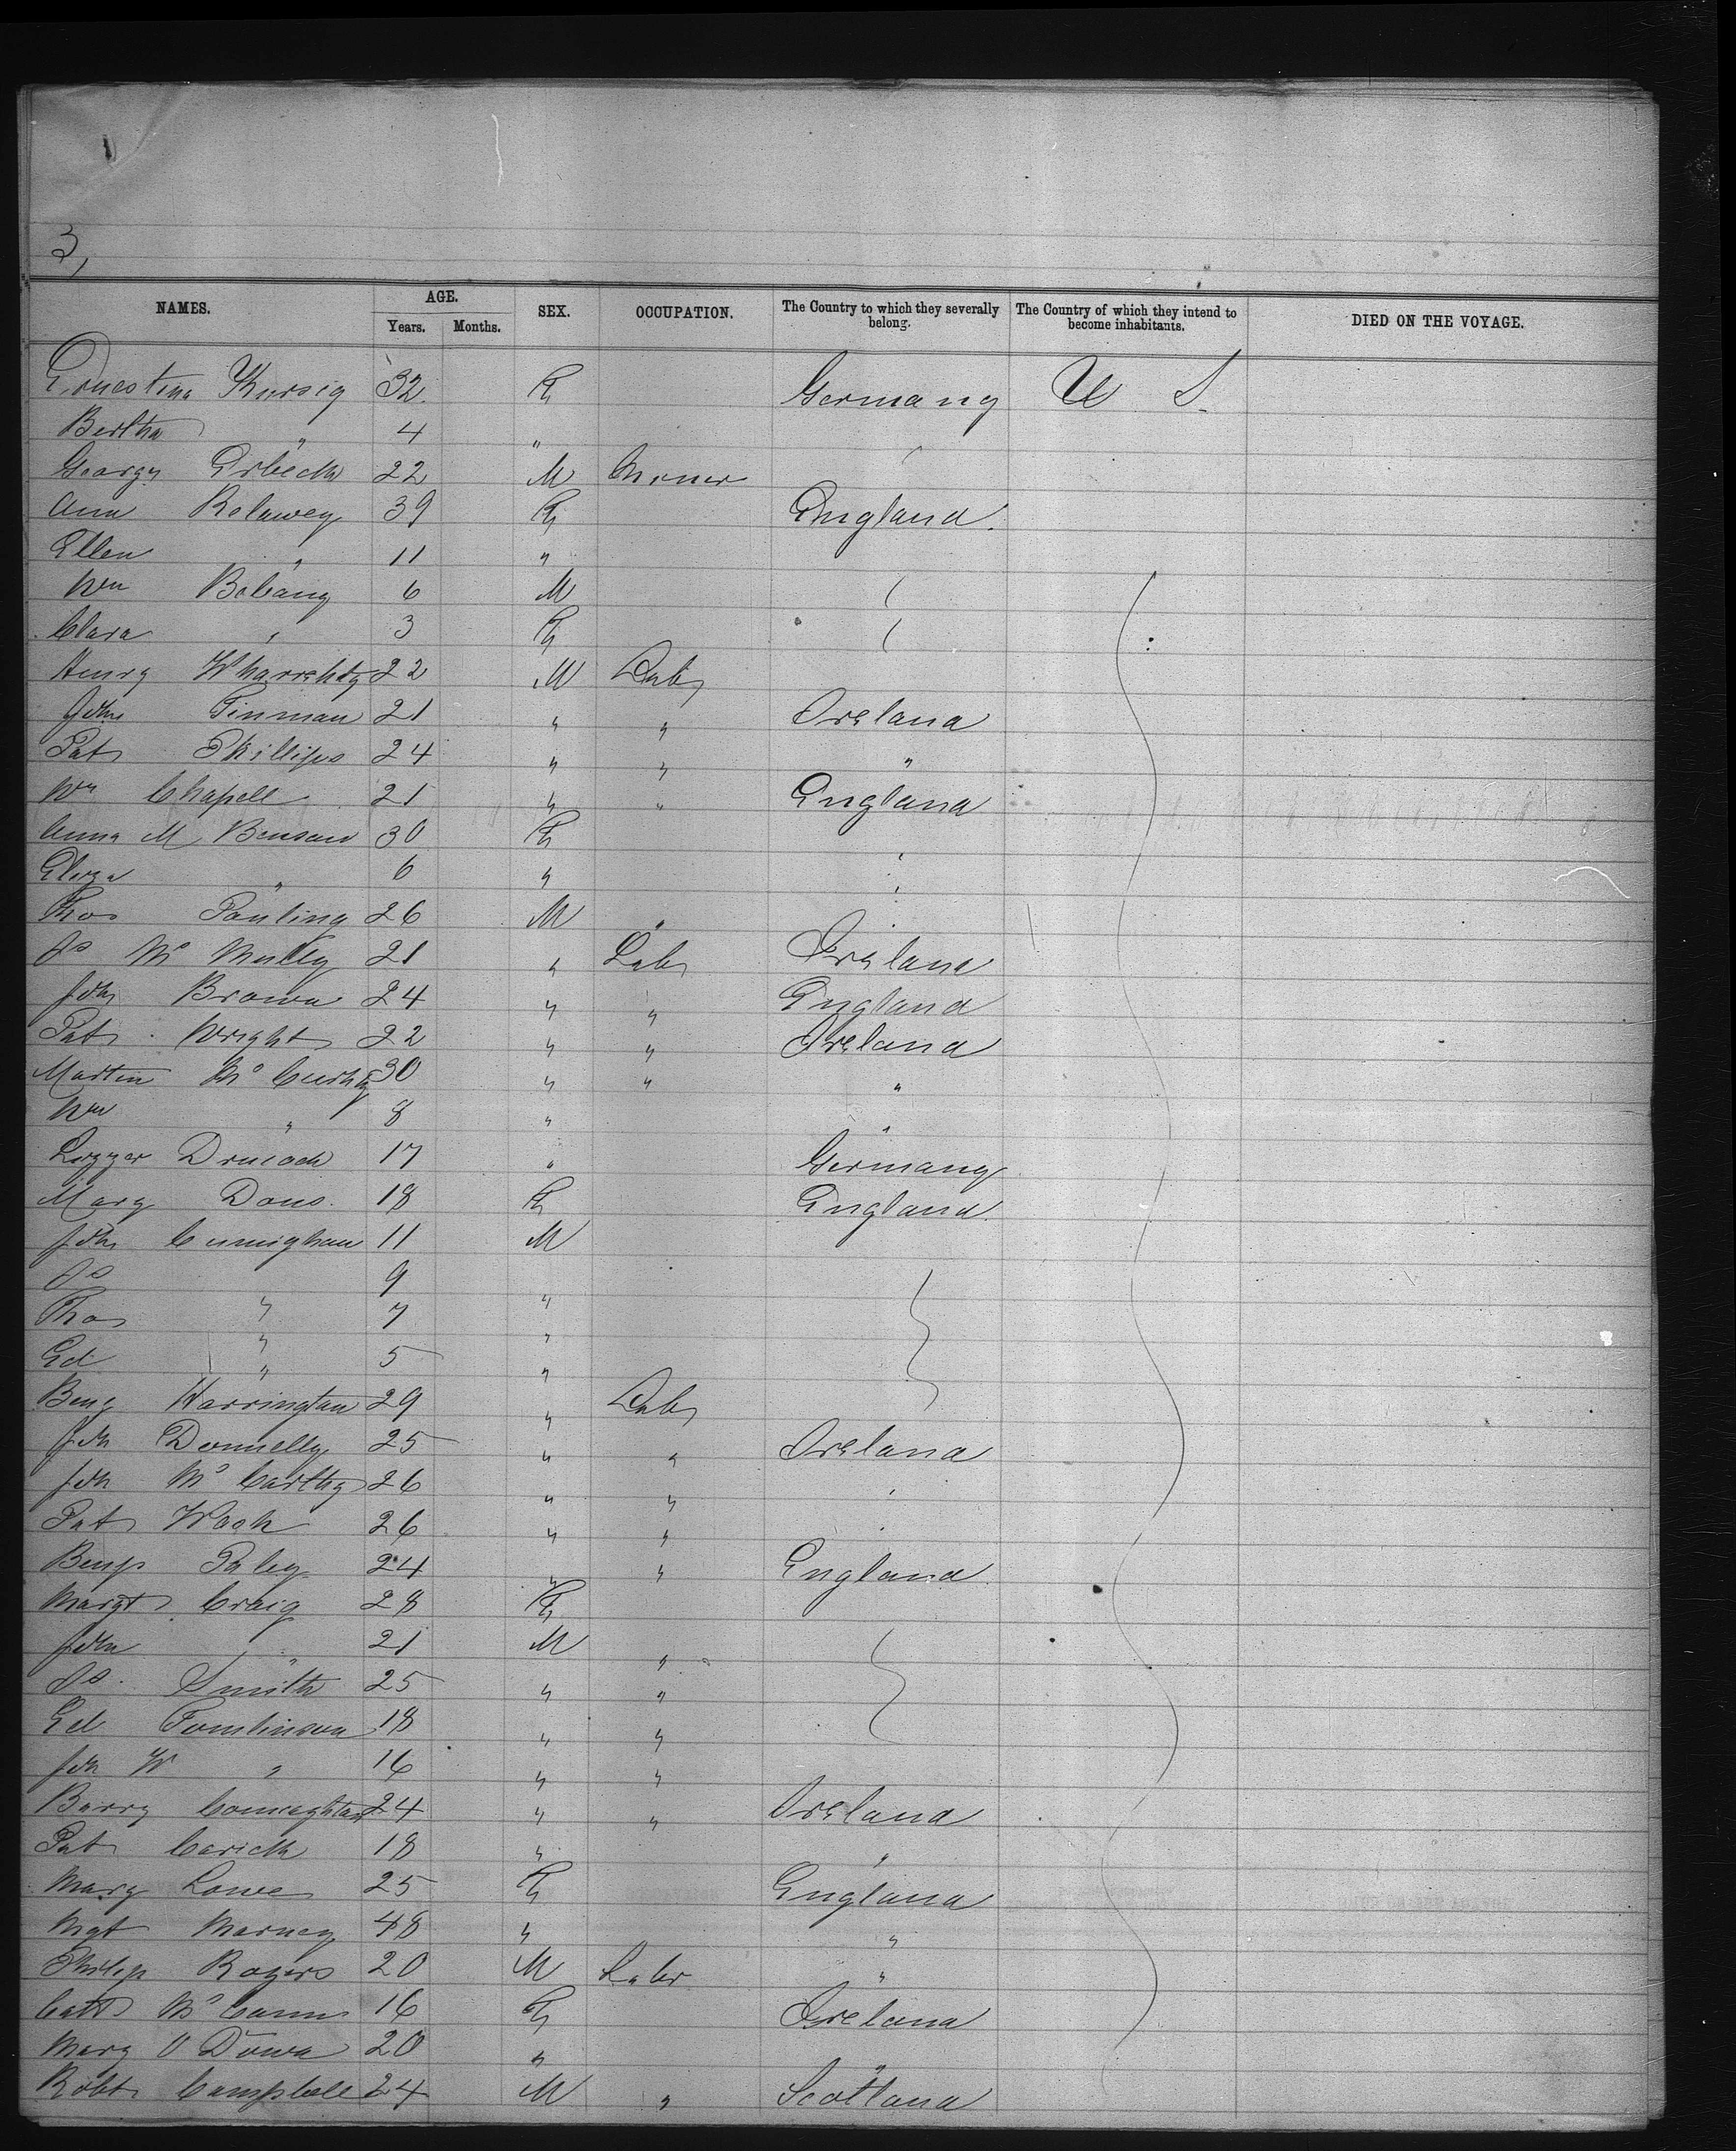 3,
NAMES. AGE. SEX. OCCUPATION. The Country to which they severally belong. The Country of which they intend to become inhabitants. DIED ON THE VOYAGE.
Years. Months.
Ernestina Kursig 32 F Germany U S
Bertha " 4 "
George Erbeck 22 M Miner
Ann 39 F England
Ellen " 11 "
Wm 6 M
Clara " 3 F
Henry 22 M Lab
John Finman 21 " " Ireland
Pat Phillips 24 " " "
Wm Chapell 21 " " England
Anna M Benson 30 F "
Eliza " 6 " "
Thos Pauling 26 M " "
Js Mc Nully 21 " Lab Ireland
Joh Brown 24 " " England
Pat Wright 22 " " Ireland
Martin 30 " " "
Wm " 8 " "
17 " Germany
Mary 18 F England
Joh Cunnigham 11 M
Js " 9 "
Thos " 7 "
Ed " 5 "
Benj Harrington 29 " Lab
Joh Donnelly 25 " " Ireland
Joh Mc Carthy 26 " " "
Pat 26 " " "
Benj 24 " " England
Margt Craig 28 F
John " 21 M "
Js Smith 25 " "
Ed Tomlinson 18 " "
Joh W " 16 " "
Barry 24 " " Ireland
Pat 18 " "
Mary Lowe 25 F England
Mgt 48 " "
Philip Rogers 20 M Labr "
Cath Mc Cann 16 F Ireland
Mary O Dowd 20 " "
Robt Campbell 24 M " Scotland